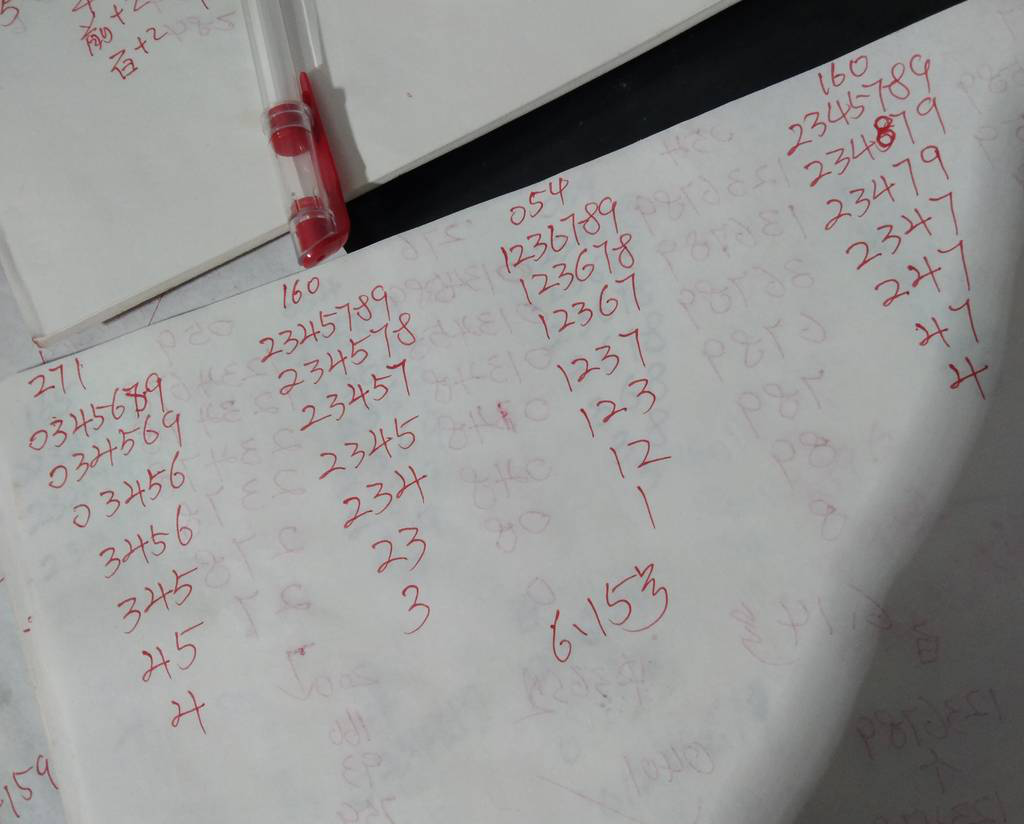 前+2
百+2
271
0345689
034569
03456
3456
345
45
4
160
2345789
234578
23457
2345
234
23
3
054
1236789
123678
12367
1237
123
12
1
6.15号
160
2345789
234879
23479
2347
247
47
4
159